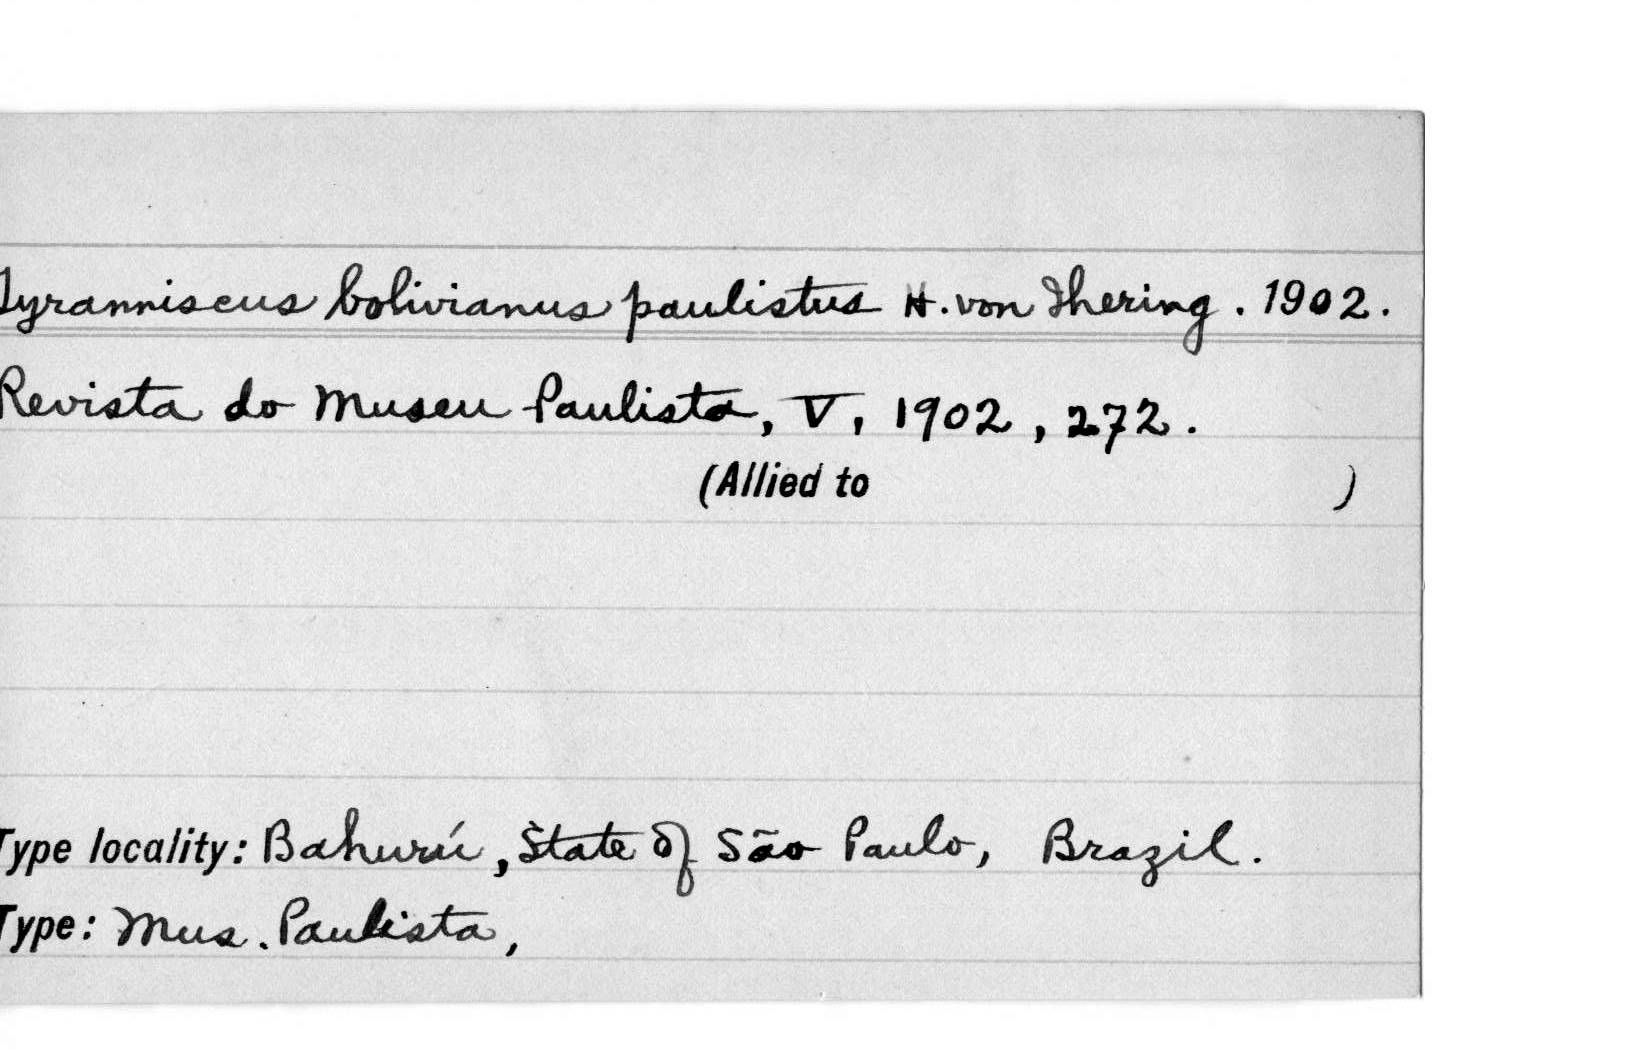 Tyranniscus bolivianus paulistus H. von Ihering. 1902.
Revista do Museu Paulista, V, 1902, 272.
(Allied to )
Type locality: Bahurú, State of São Paulo, Brazil.
Type: Mus. Paulista,